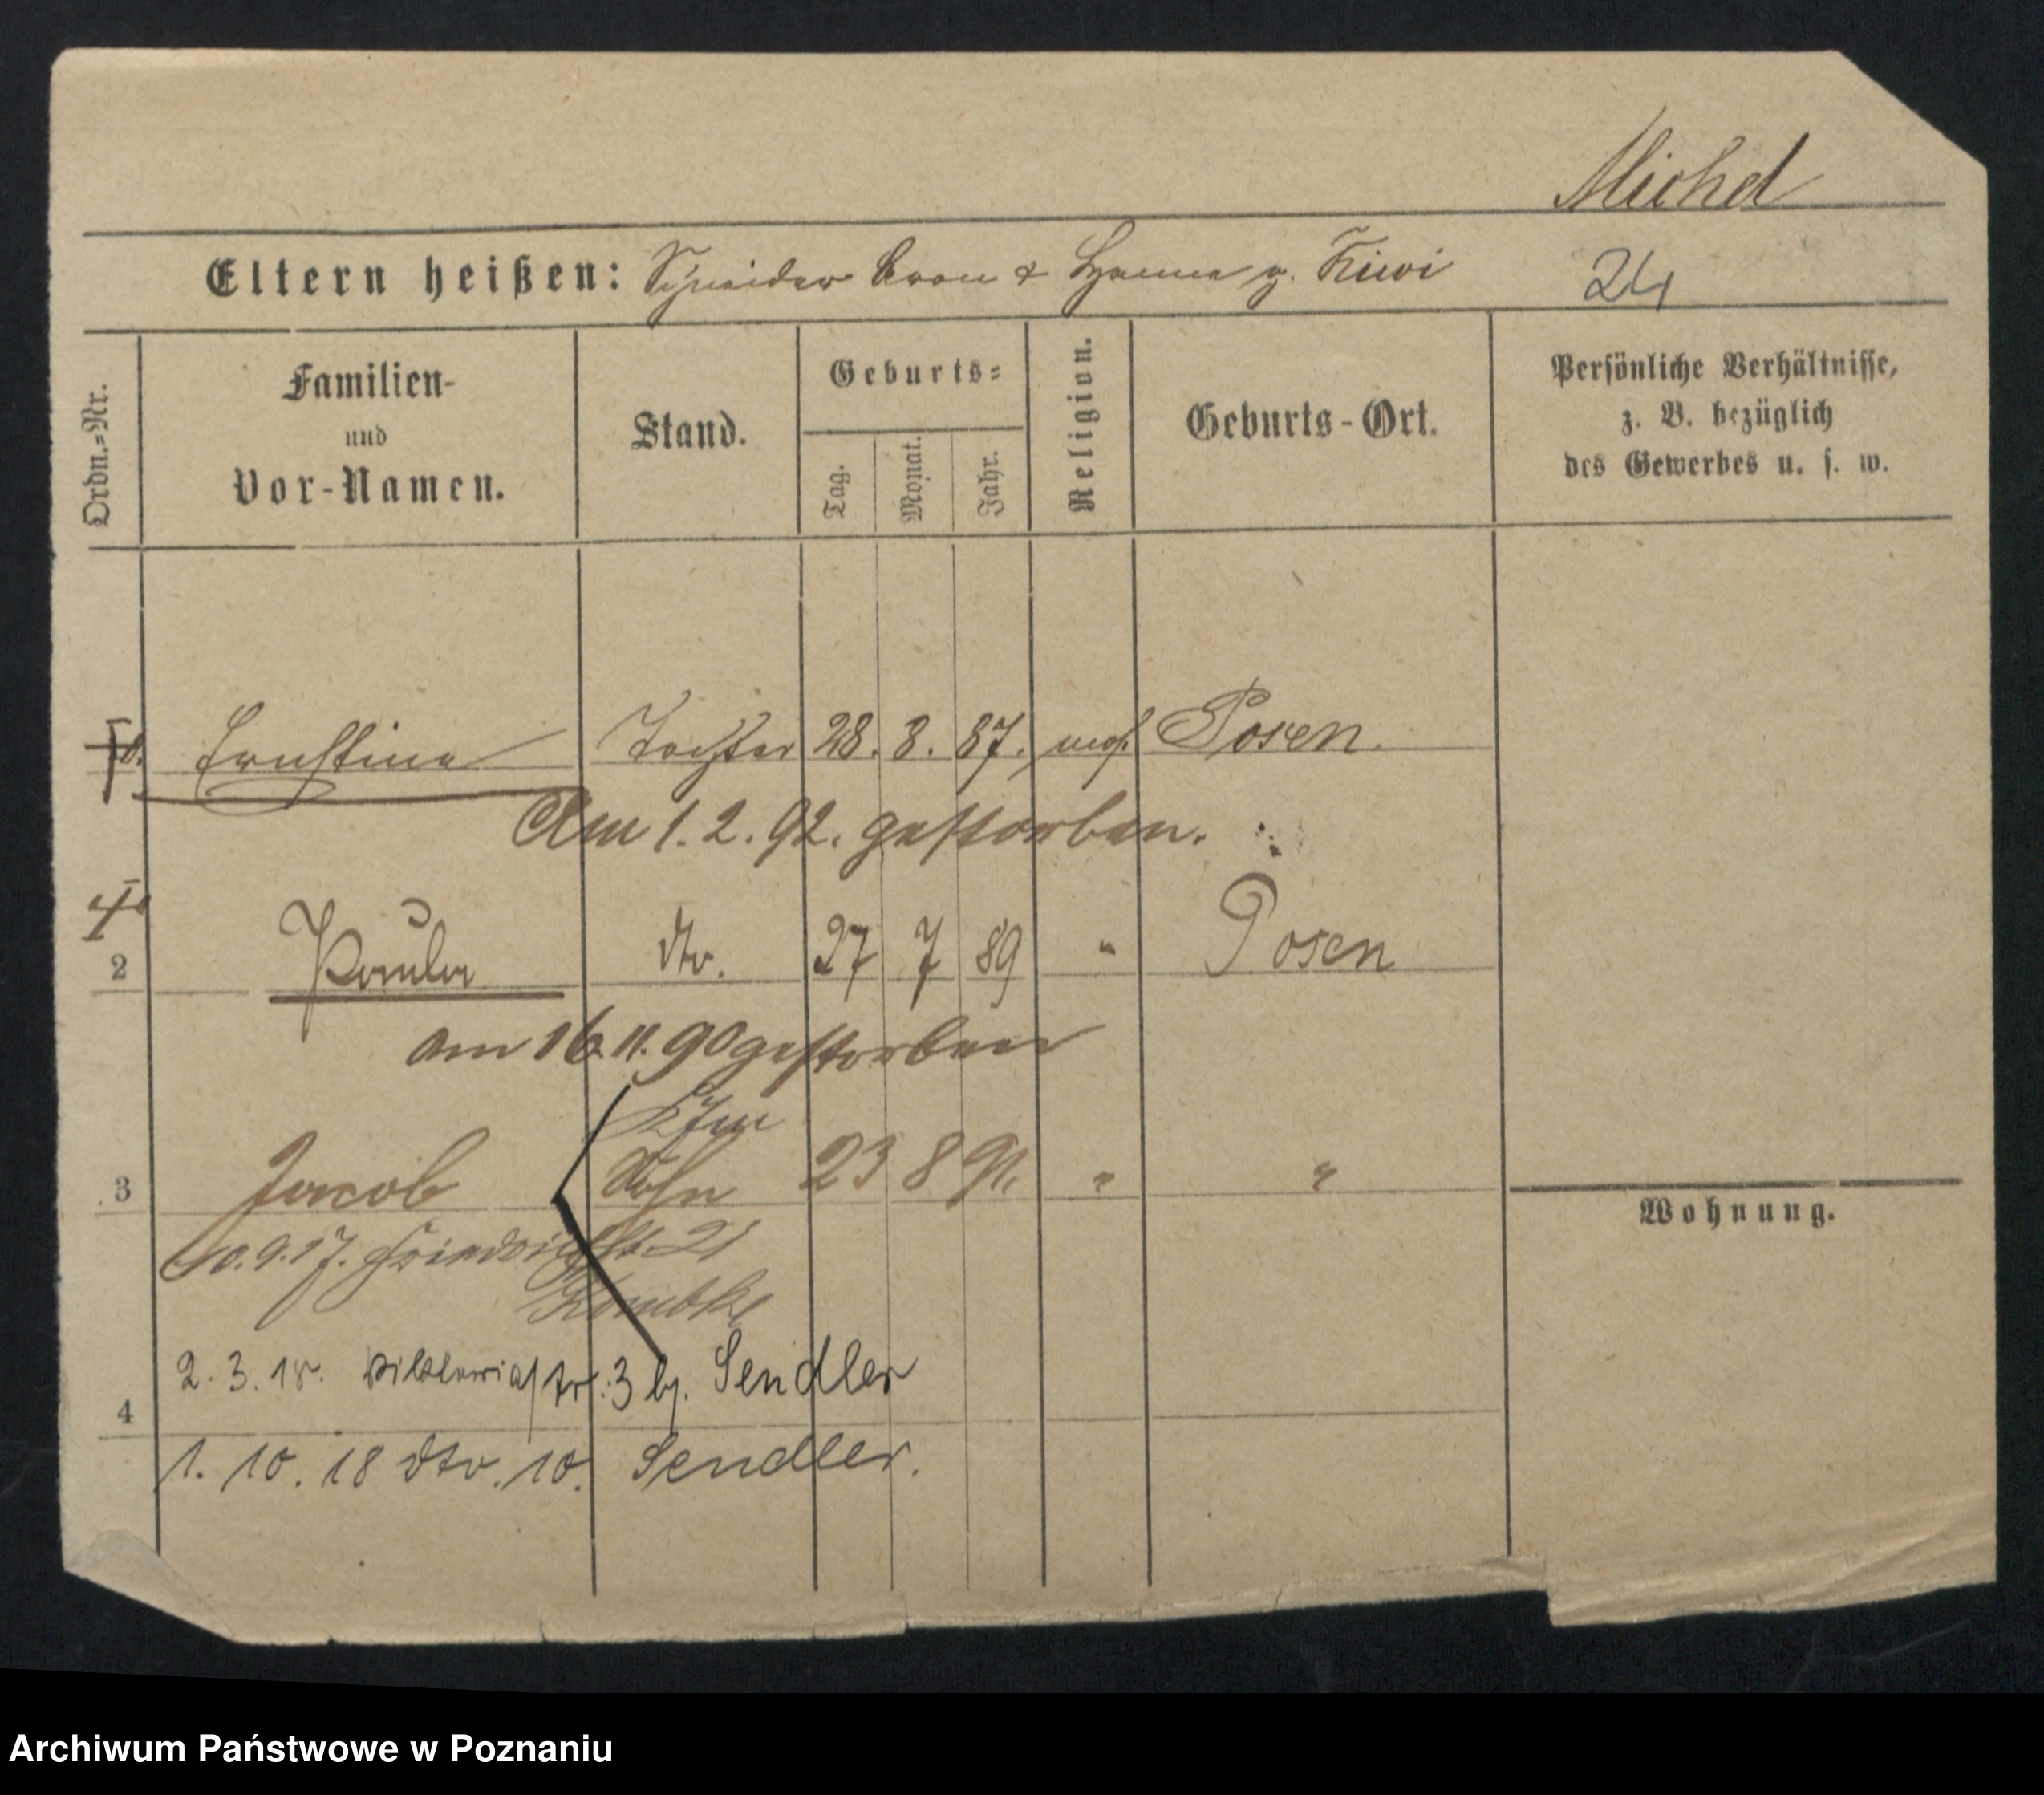 Michel
Eltern heißen: Schneider Aron & Hanne g. Kiwi 24
Ordn.=Nr.
Familien-
und
Vor-Namen.
Stand.
Geburts=
Tag.
Monat.
Jahr.
Religion.
Geburts-Ort.
Persönliche Verhältnisse,
z. B. bezüglich
des Gewerbes u. s. w.
Ernstine Tochter 28. 8. 87. mos. Posen.
Am 1. 2. 92. gestorben.
2 Paula dto. 27 7 89 " Posen
am 16. 11. 90 gestorben
Kfm
3 Jacob Sohn 23 8 91. " "
Wohnung.
10. 9. 17. Friedrichstr. 21
2. 3. 18. Viktoriastr. 3 bj. Sendler
4
1. 10. 18 dto. 10. Sendler.
Archiwum Państwowe w Poznaniu